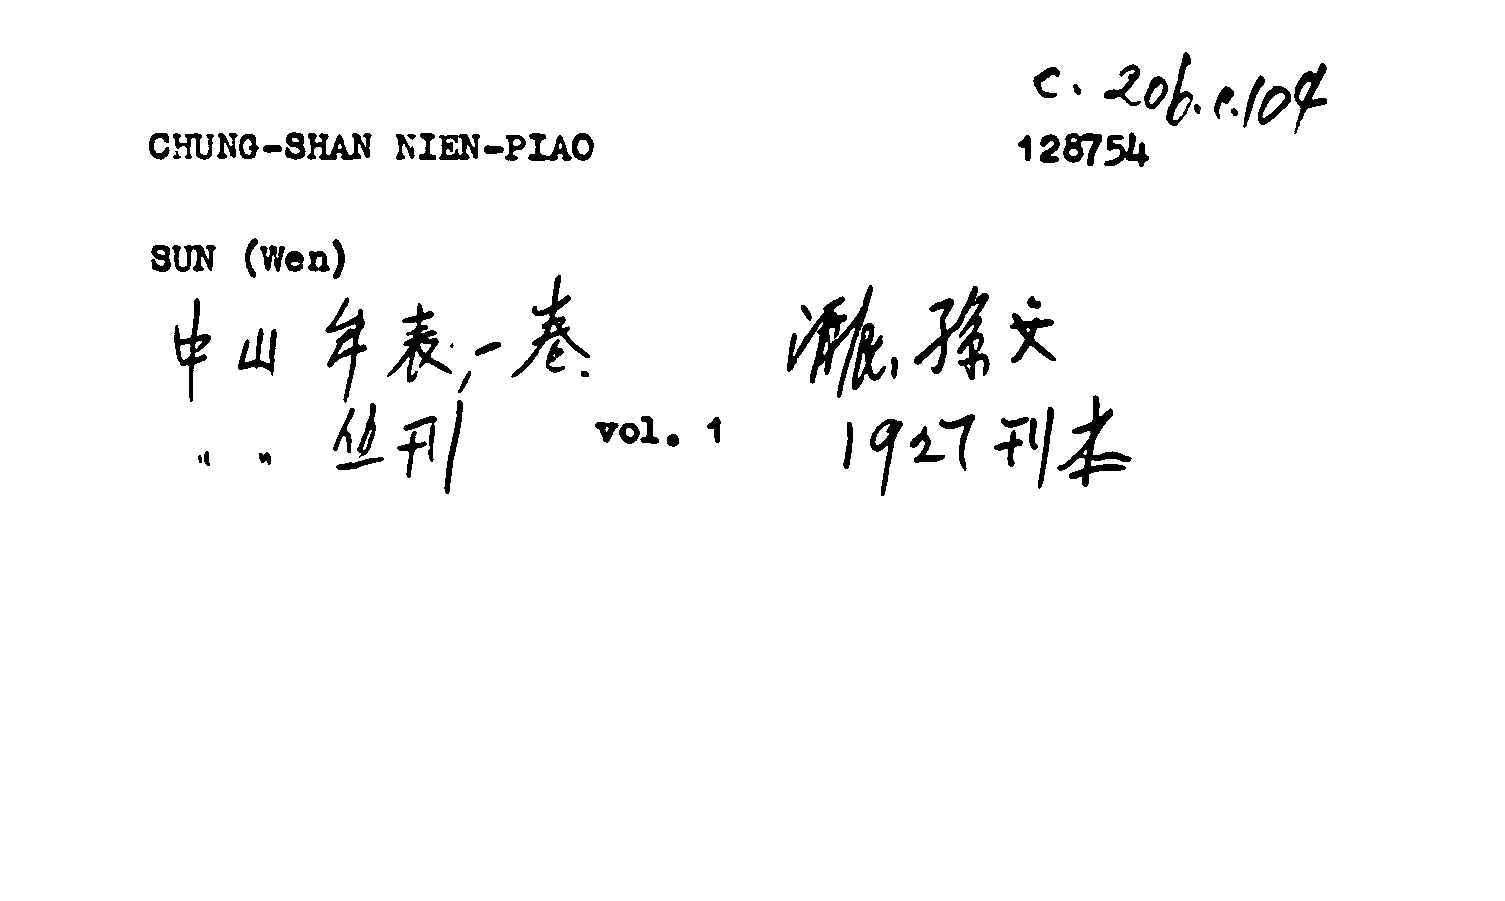 c. 206.c.104
CHUNG-SHAN NIEN-PIAO 128754
SUN (Wen)
中山年表,一卷. 孫文
" " 丛刊 vol. 1 1927刊本